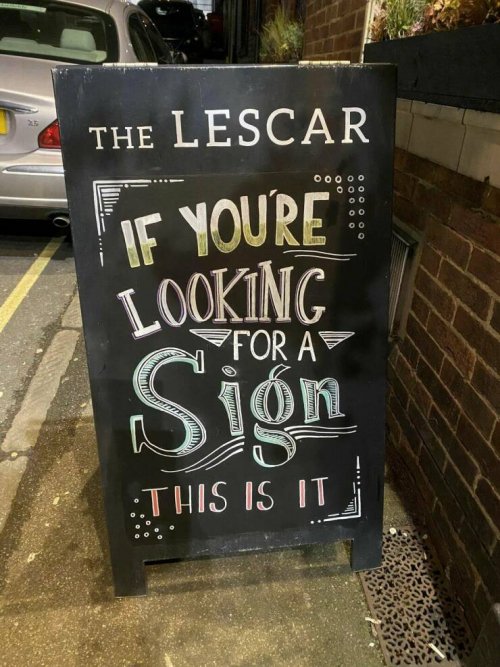 THE LESCAR
IF YOU'RE
LOOKING
FOR A
Sign
THIS IS IT